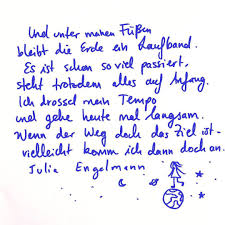 Und unter meinen Füßen
bleibt die Erde ein Laufband.
Es ist schon so viel passiert,
steht trotzdem alles auf Anfang.
Ich drossel mein Tempo
und gehe heute mal langsam.
Wenn der Weg doch das Ziel ist -
vielleicht komm ich dann doch an.
Julia Engelmann